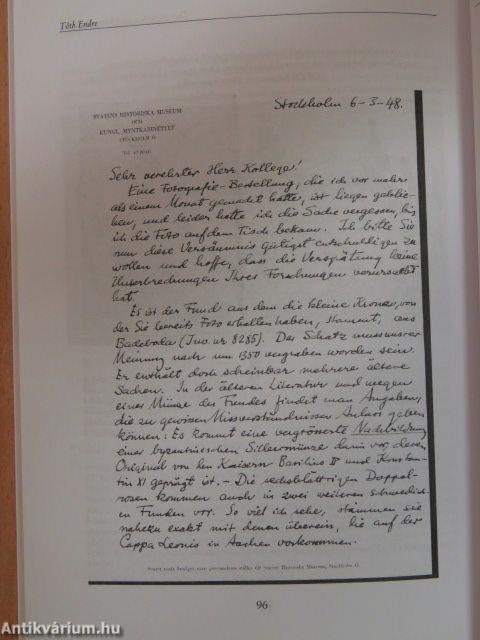 Tóth Endre
STATENS HISTORISKA MUSEUM
OCH
KUNGL. MYNTKABINETTET
STOCKHOLM Ö
Stockholm 6-3-48.
Sehr verehrter Herr Kollege!
Eine Fotografie-Bestellung, die ich vor mehr
als einem Monat gemacht hatte, ist liegen geblie-
ben, und leider hatte ich die Sache vergessen, bis
ich die Foto auf dem Tisch bekam. Ich bitte Sie
nun diese Versäumnis gütigst entschuldigen zu
wollen und hoffe, dass die Verspätung keine
Unterbrechungen Ihres Forschungen verursacht
hat.
Es ist der Fund aus dem die kleine Krone, von
der Sie bereits Foto erhalten haben, stammt, aus
Badeboda (Inv. nr 8285). Der Schatz muss unsrer
Meinung nach um 1350 vergraben worden sein.
Er enthält doch scheinbar mehrere ältere
Sachen. In der älteren Literatur und wegen
einer Münze des Fundes findet man Angaben,
die zu gewissen Missverständnissen Anlass geben
können: Es kommt eine vergrösserte Nachbildung
einer byzantinischen Silbermünze darin vor, deren
Original von den Kaisern Basilius II und Konstan-
tin XI geprägt ist. - Die sechsblättrigen Doppel-
rosen kommen auch in zwei weiteren schwedisch-
en Funden vor. So viel ich sehe, stimmen sie
nahezu exakt mit denen überein, die auf der
Cappa Leonis in Aachen vorkommen.
96
Antikvárium.hu